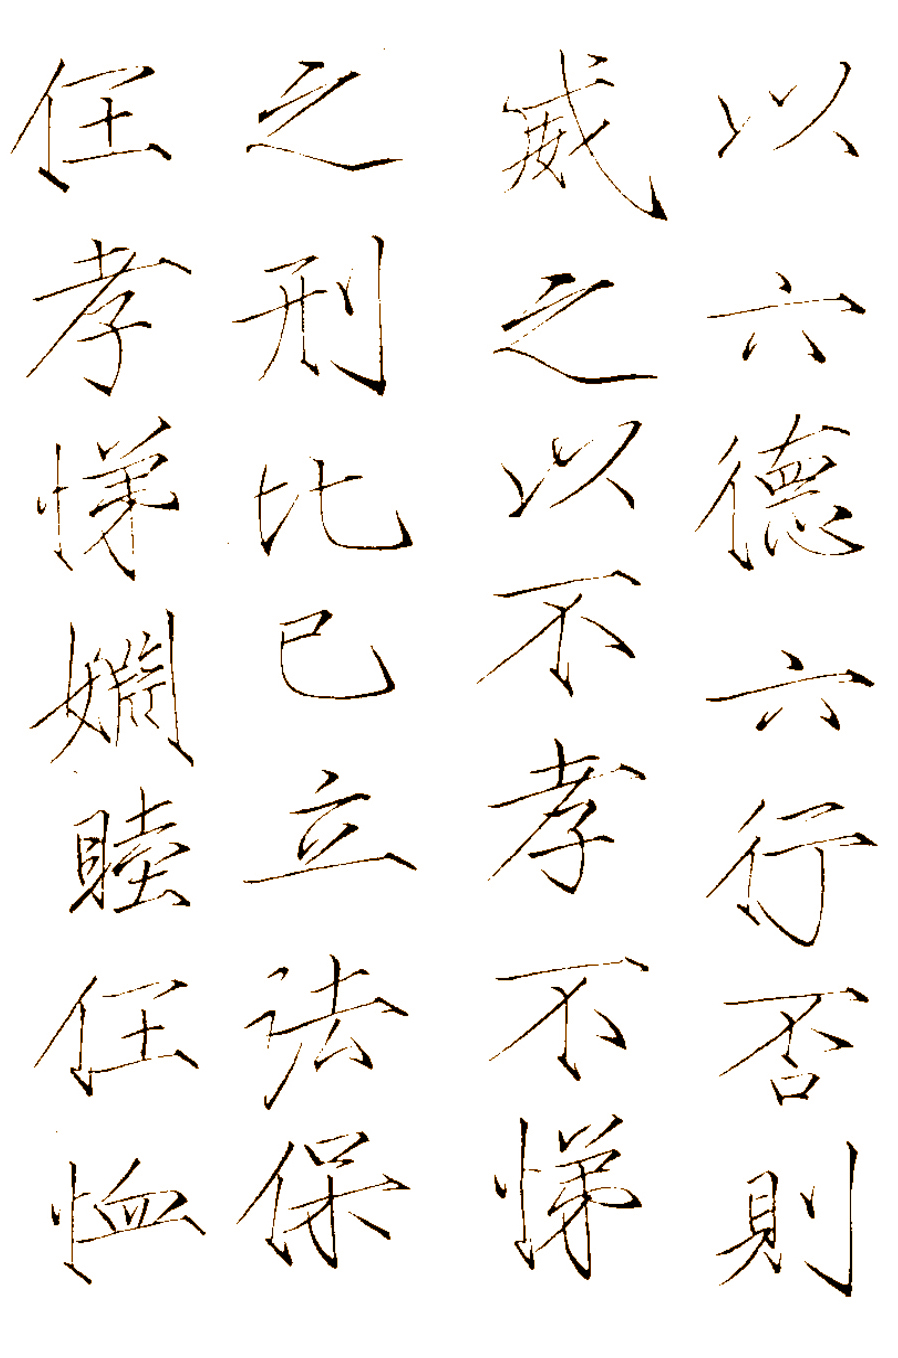 以六德六行否則
威之以不孝不悌
之刑比已立法保
任孝悌婣睦任恤